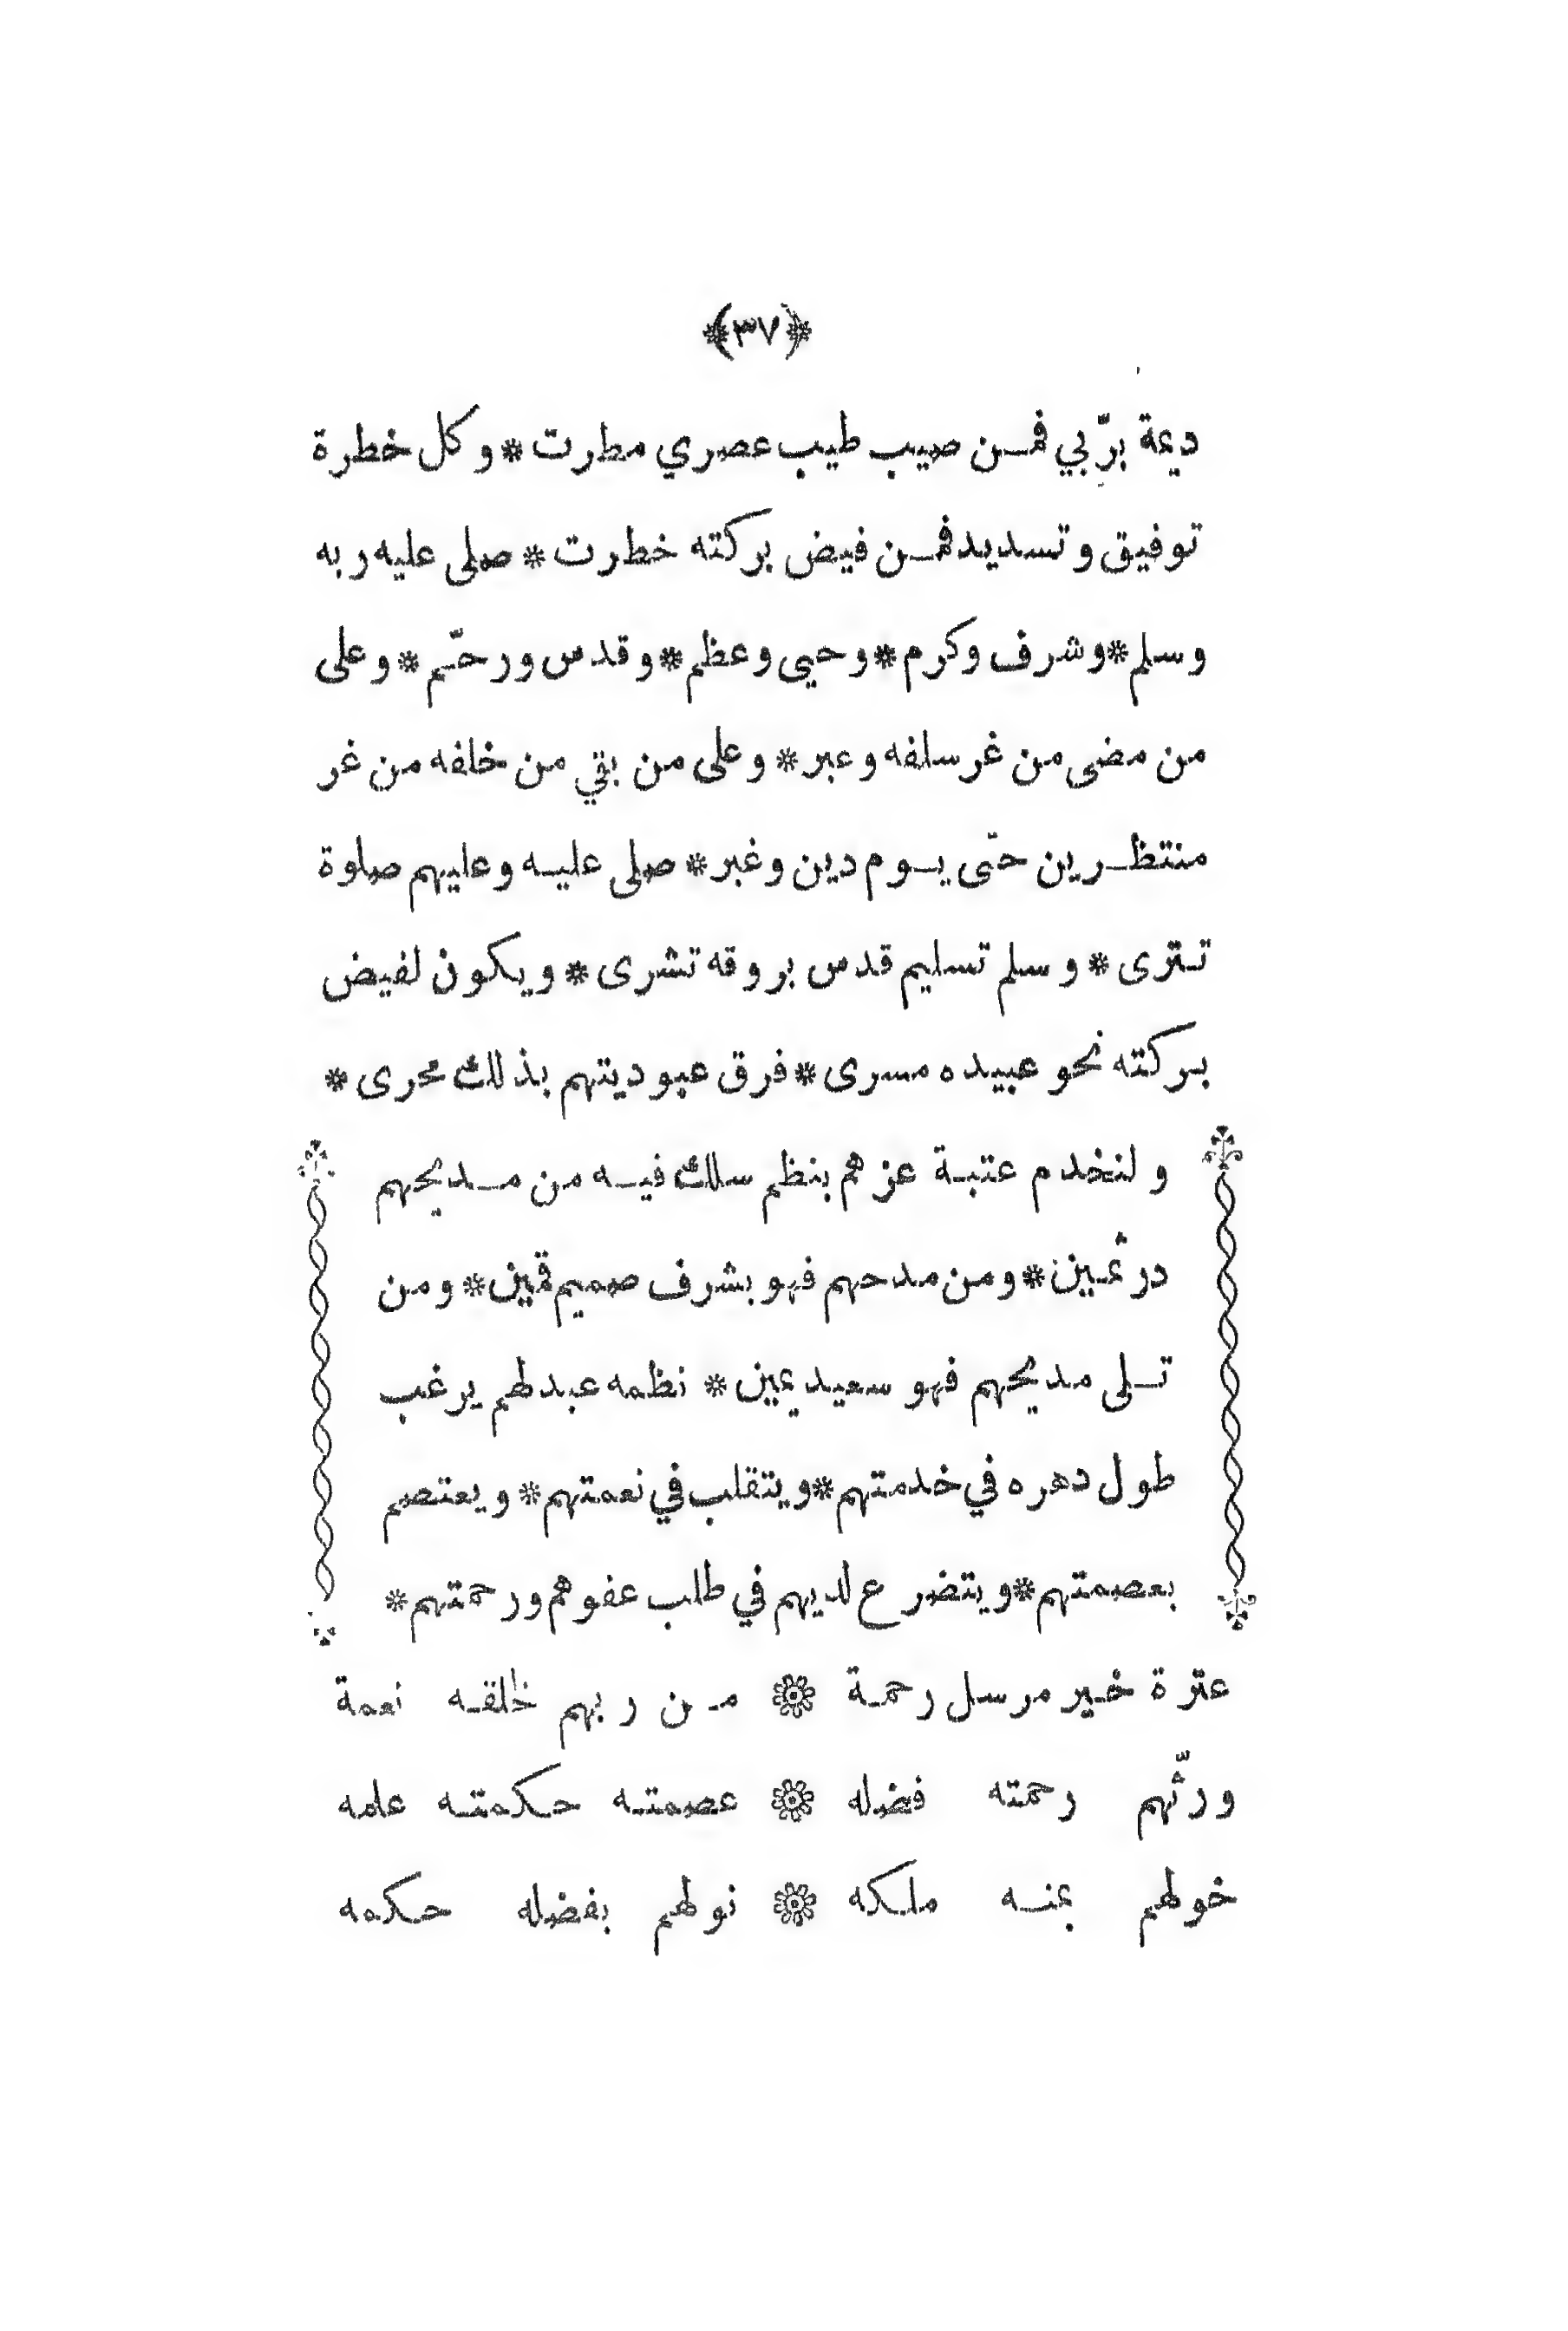 ﴿٣٧﴾
ديمة برّ بي فمن صيب طيب عصري مطرت * وكل خطرة
توفيق وتسديد فمن فيض بركته خطرت * صلى عليه ربه
وسلم * وشرف وكرم * وحيى وعظم * وقدس ورحّم * وعلى
من مضى من غر سلفه وعبر * وعلى من بقي من خلفه من غر
منتظرين حتّى يوم دين وغبر * صلى عليه وعليهم صلوة
تترى * وسلم تسليم قدس بروقه تشرى * ويكون لفيض
بركته نحو عبيده مسرى * فرق عبوديتهم بذلك محرى *
ولنخدم عتبة عزهم بنظم سلك فيه من مديحهم
در ثمين * ومن مدحهم فهو بشرف صميم قمين * ومن
تلى مديحهم فهو سعيد يمين * نظمه عبد لهم يرغب
طول دهره في خدمتهم * ويتقلب في نعمتهم * ويعتصم
بعصمتهم * ويتضرع لديهم في طلب عفوهم ورحمتهم *
عترة خير مرسل رحمة ۞ من ربهم خلقه نعمة
ورّثهم رحمته فضله ۞ عصمته حكمته علمه
خولهم بمنه ملكه ۞ نولهم بفضله حكمه